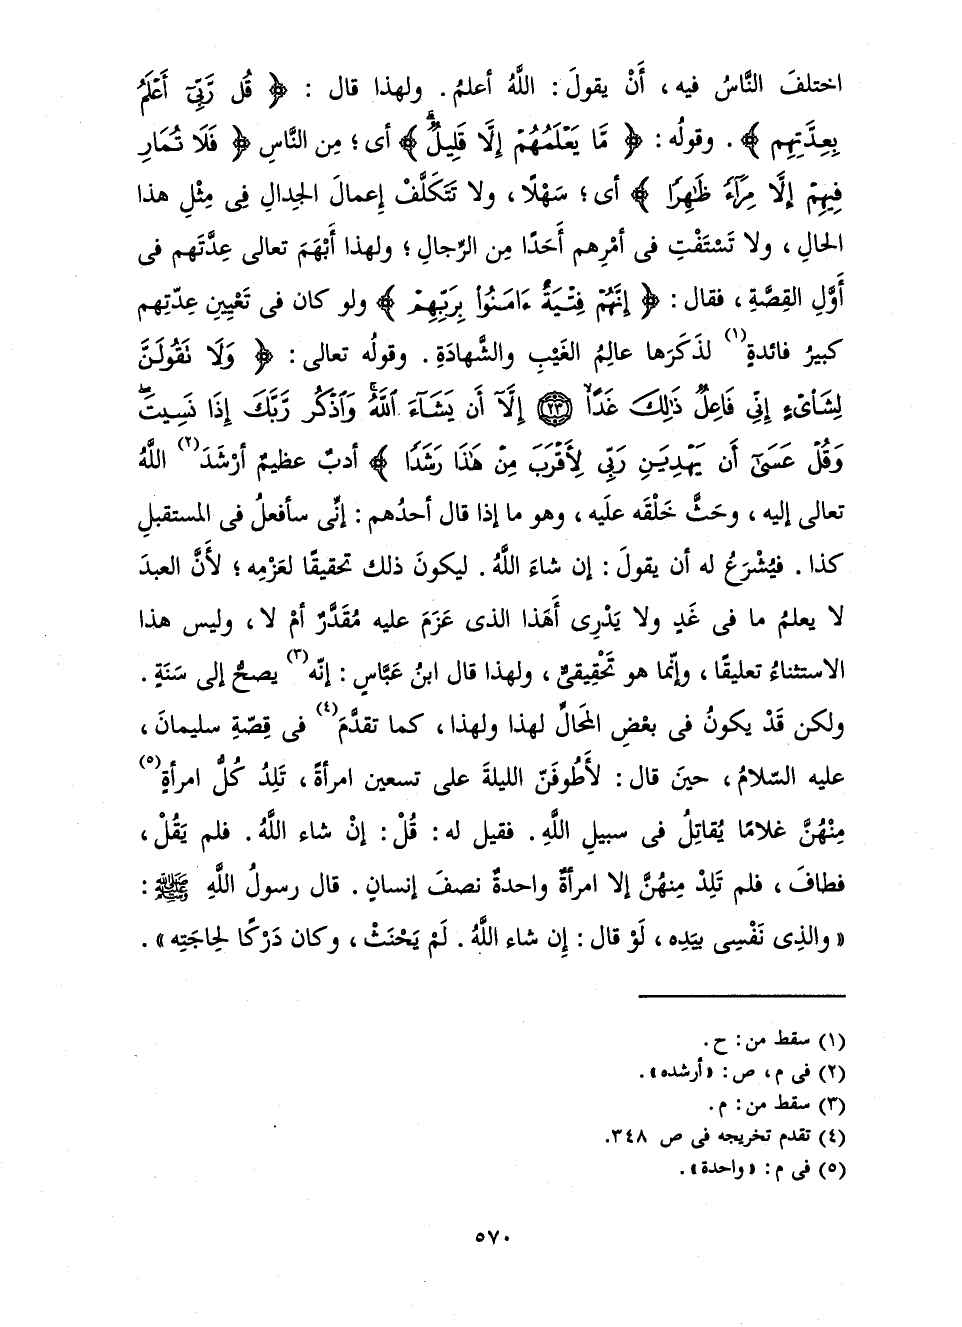 اختلفَ النَّاسُ فيه ، أَنْ يقولَ : اللَّهُ أعلمُ . ولهذا قال : ﴿ قُل رَّبِّىٓ أَعْلَمُ
بِعِدَّتِهِم ﴾ . وقولُه : ﴿ مَّا يَعْلَمُهُمْ إِلَّا قَلِيلٌ ﴾ أى ؛ مِن النَّاسِ ﴿ فَلَا تُمَارِ
فِيهِمْ إِلَّا مِرَآءً ظَٰهِرًا ﴾ أى ؛ سَهْلًا ، ولا تَتَكَلَّفْ إعمالَ الجِدالِ فِى مِثْلِ هذا
الحالِ ، ولا تَسْتَفْتِ فى أمْرِهم أَحَدًا مِن الرِّجالِ ؛ ولهذا أَبْهَمَ تعالى عِدَّتَهم فى
أوَّلِ القِصَّةِ ، فقال : ﴿ إِنَّهُمْ فِتْيَةٌ ءَامَنُوا۟ بِرَبِّهِمْ ﴾ ولو كان فى تَعْيِينِ عِدّتِهم
كبيرُ فائدةٍ(١) لذَكَرَها عالِمُ الغَيْبِ والشَّهادَةِ . وقولُه تعالى : ﴿ وَلَا تَقُولَنَّ
لِشَا۟ىْءٍ إِنِّى فَاعِلٌ ذَٰلِكَ غَدًا ۝٢٣ إِلَّآ أَن يَشَآءَ ٱللَّهُ ۚ وَٱذْكُر رَّبَّكَ إِذَا نَسِيتَ
وَقُلْ عَسَىٰٓ أَن يَهْدِيَنِ رَبِّى لِأَقْرَبَ مِنْ هَٰذَا رَشَدًا ﴾ أدبٌ عظيمٌ أرْشَدَ(٢) اللَّهُ
تعالى إليه ، وحَثَّ خَلْقَه علَيه ، وهو ما إذا قال أحدُهم : إنِّى سأفعلُ فى المستقبلِ
كذا . فيُشْرَعُ له أن يقولَ : إن شاءَ اللَّهُ . ليكونَ ذلك تحقيقًا لعَزْمِه ؛ لأَنَّ العبدَ
لا يعلمُ ما فى غَدٍ ولا يَدْرِى أَهَذا الذى عَزَمَ عليه مُقَدَّرٌ أمْ لا ، وليس هذا
الاستثناءُ تعليقًا ، وإنَّما هو تَحْقِيقىٌّ ، ولهذا قال ابنُ عَبَّاسٍ : إنّه(٣) يصحُّ إلى سَنَةٍ .
ولكن قَدْ يكونُ فى بعْضِ المَحَالِّ لهذا ولهذا ، كما تقدَّمَ(٤) فى قِصّةِ سليمانَ ،
عليه السّلامُ ، حينَ قال : لأَطُوفَنّ الليلةَ على تسعين امرأةً ، تَلِدُ كُلُّ امرأةٍ(٥)
مِنْهُنَّ غلامًا يُقاتِلُ فى سبيلِ اللَّهِ . فقيل له : قُلْ : إنْ شاء اللَّهُ . فلم يَقُلْ ،
فطافَ ، فلم تَلِدْ مِنهُنَّ إلا امرأةٌ واحدةٌ نصفَ إنسانٍ . قال رسولُ اللَّهِ ﷺ :
« والذِى نَفْسِى بيَدِه ، لَوْ قال : إِن شاء اللَّهُ . لَمْ يَحْنَثْ ، وكان دَرْكًا لحِاجَتِه » .
(١) سقط من : ح .
(٢) فى م ، ص : « أرشده » .
(٣) سقط من : م .
(٤) تقدم تخريجه فى ص ٣٤٨ .
(٥) فى م : « واحدة » .
٥٧٠